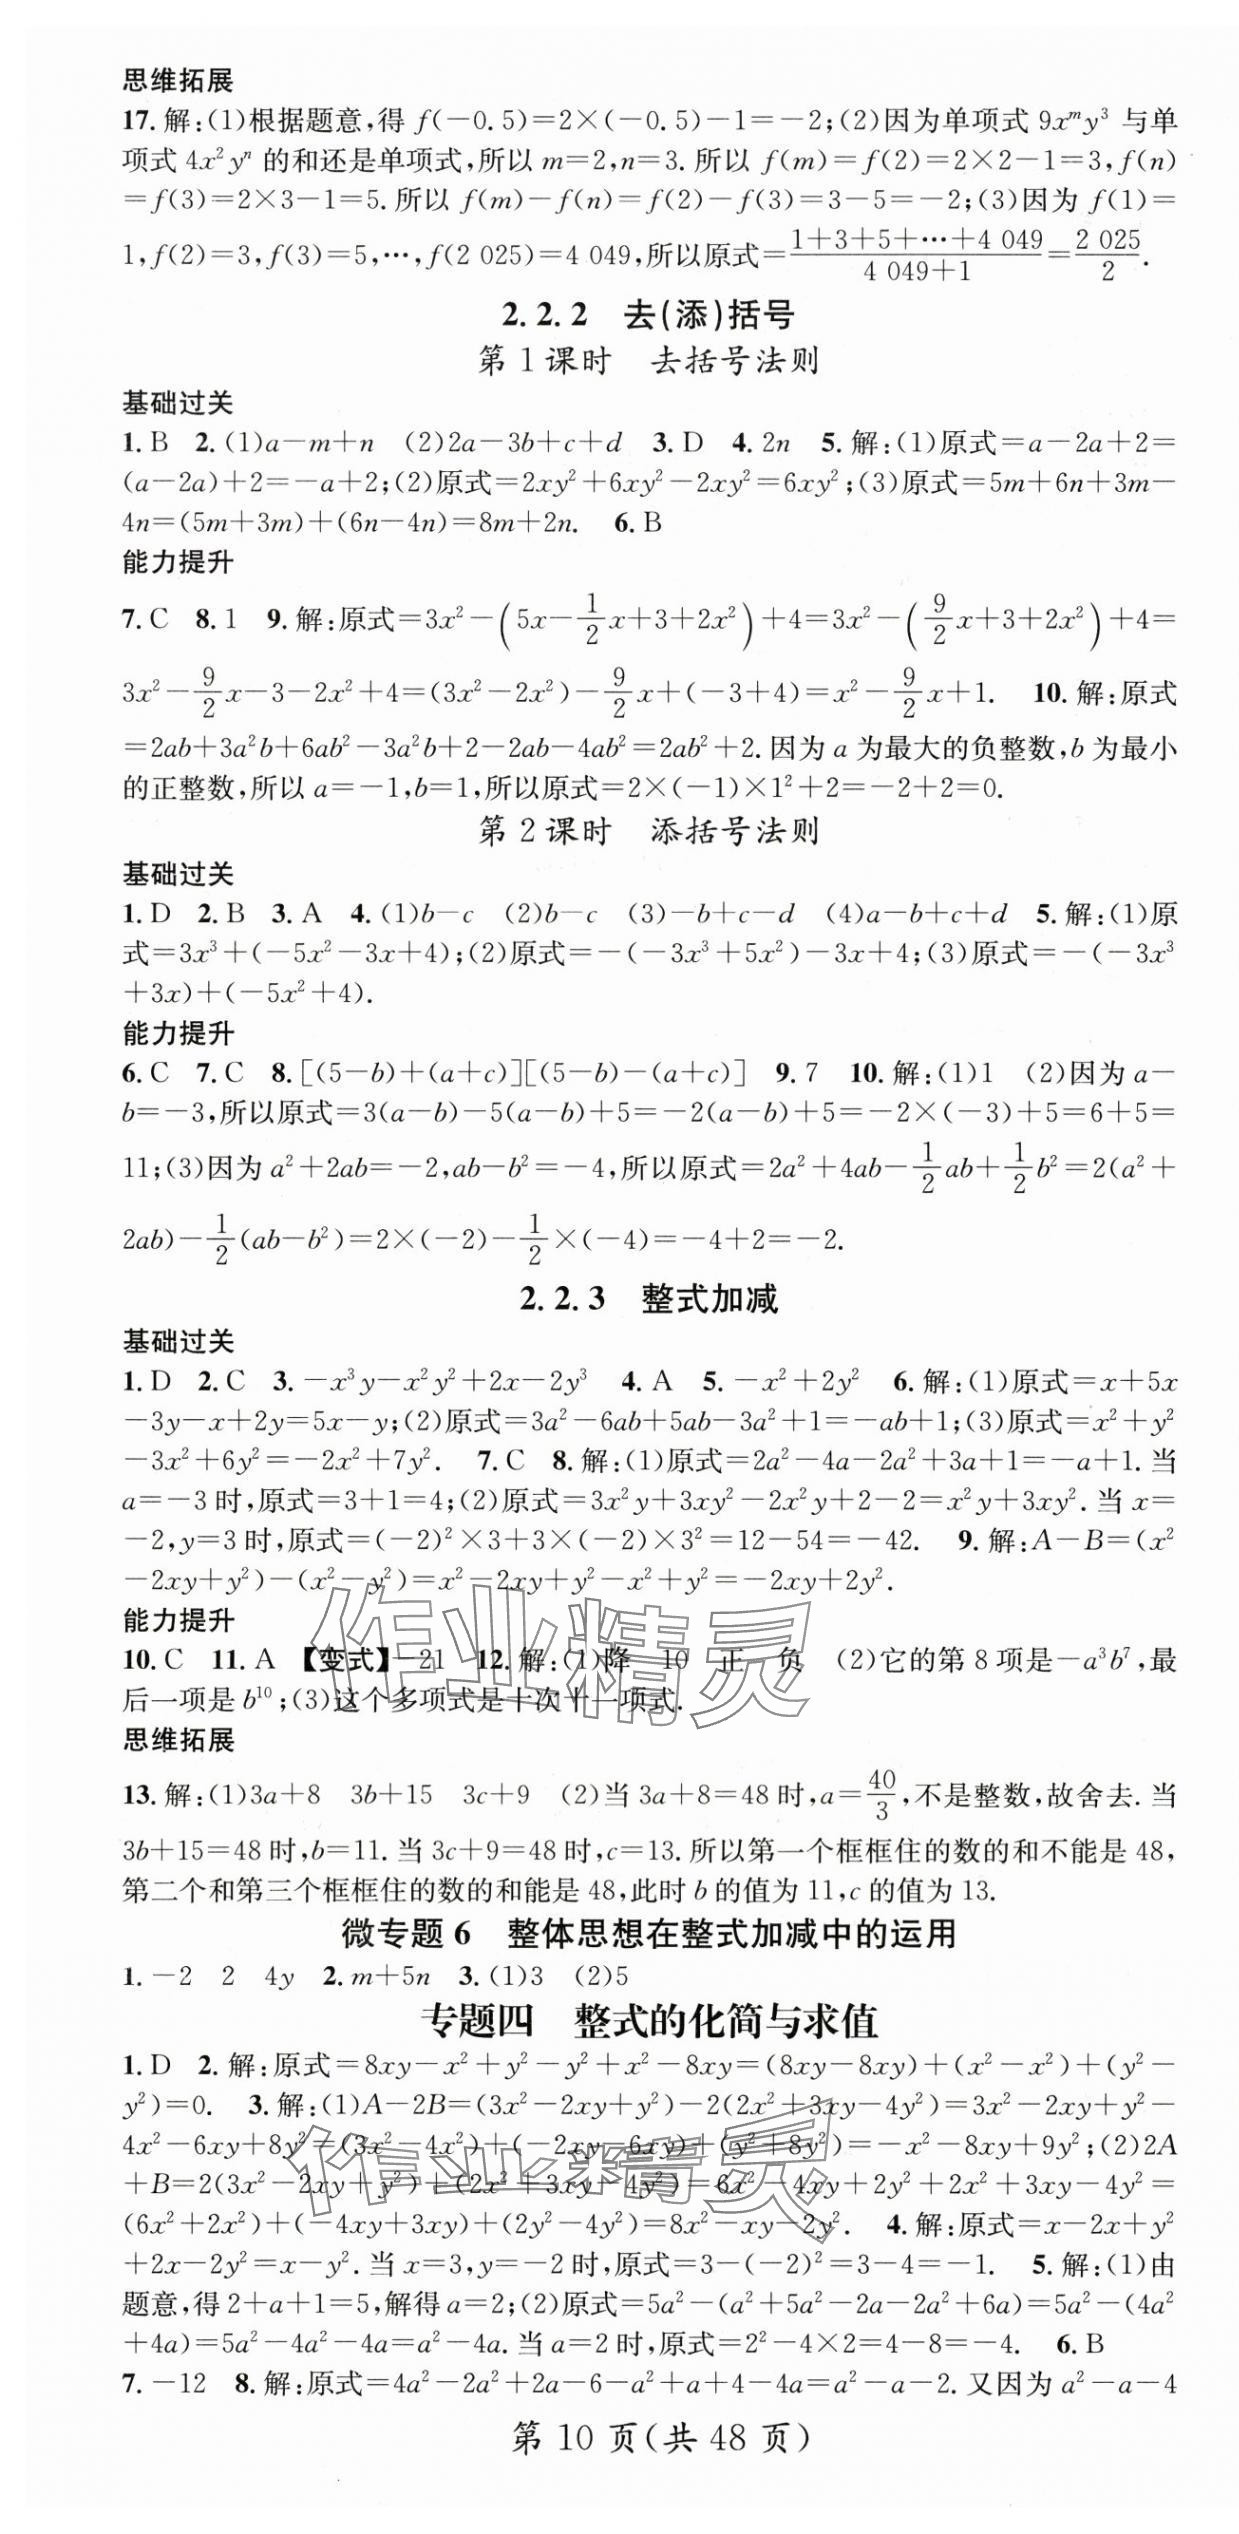 思维拓展
17. 解:(1)根据题意,得 f(-0.5)=2×(-0.5)-1=-2;(2)因为单项式 9x^m y^3 与单
项式 4x^2 y^n 的和还是单项式,所以 m=2,n=3. 所以 f(m)=f(2)=2×2-1=3,f(n)
=f(3)=2×3-1=5. 所以 f(m)-f(n)=f(2)-f(3)=3-5=-2;(3)因为 f(1)=
1,f(2)=3,f(3)=5,…,f(2 025)=4 049,所以原式=(1+3+5+…+4 049)/(4 049+1)=2 025/2.
2.2.2 去(添)括号
第 1 课时 去括号法则
基础过关
1. B 2. (1)a-m+n (2)2a-3b+c+d 3. D 4. 2n 5. 解:(1)原式=a-2a+2=
(a-2a)+2=-a+2;(2)原式=2xy^2+6xy^2-2xy^2=6xy^2;(3)原式=5m+6n+3m-
4n=(5m+3m)+(6n-4n)=8m+2n. 6. B
能力提升
7. C 8. 1 9. 解:原式=3x^2-(5x-1/2x+3+2x^2)+4=3x^2-(9/2x+3+2x^2)+4=
3x^2-9/2x-3-2x^2+4=(3x^2-2x^2)-9/2x+(-3+4)=x^2-9/2x+1. 10. 解:原式
=2ab+3a^2b+6ab^2-3a^2b+2-2ab-4ab^2=2ab^2+2. 因为 a 为最大的负整数,b 为最小
的正整数,所以 a=-1,b=1,所以原式=2×(-1)×1^2+2=-2+2=0.
第 2 课时 添括号法则
基础过关
1. D 2. B 3. A 4. (1)b-c (2)b-c (3)-b+c-d (4)a-b+c+d 5. 解:(1)原
式=3x^3+(-5x^2-3x+4);(2)原式=-(-3x^3+5x^2)-3x+4;(3)原式=-(-3x^3
+3x)+(-5x^2+4).
能力提升
6. C 7. C 8. [(5-b)+(a+c)][(5-b)-(a+c)] 9. 7 10. 解:(1)1 (2)因为 a-
b=-3,所以原式=3(a-b)-5(a-b)+5=-2(a-b)+5=-2×(-3)+5=6+5=
11;(3)因为 a^2+2ab=-2,ab-b^2=-4,所以原式=2a^2+4ab-1/2ab+1/2b^2=2(a^2+
2ab)-1/2(ab-b^2)=2×(-2)-1/2×(-4)=-4+2=-2.
2.2.3 整式加减
基础过关
1. D 2. C 3. -x^3y-x^2y^2+2x-2y^3 4. A 5. -x^2+2y^2 6. 解:(1)原式=x+5x
-3y-x+2y=5x-y;(2)原式=3a^2-6ab+5ab-3a^2+1=-ab+1;(3)原式=x^2+y^2
-3x^2+6y^2=-2x^2+7y^2. 7. C 8. 解:(1)原式=2a^2-4a-2a^2+3a+1=-a+1. 当
a=-3 时,原式=3+1=4;(2)原式=3x^2y+3xy^2-2x^2y+2-2=x^2y+3xy^2. 当 x=
-2,y=3 时,原式=(-2)^2×3+3×(-2)×3^2=12-54=-42. 9. 解:A-B=(x^2
-2xy+y^2)-(x^2-y^2)=x^2-2xy+y^2-x^2+y^2=-2xy+2y^2.
能力提升
10. C 11. A 【变式】-21 12. 解:(1)降 10 正 负 (2)它的第 8 项是-a^3b^7,最
后一项是 b^10;(3)这个多项式是十次十一项式.
作业精灵
思维拓展
13. 解:(1)3a+8 3b+15 3c+9 (2)当 3a+8=48 时,a=40/3,不是整数,故舍去. 当
3b+15=48 时,b=11. 当 3c+9=48 时,c=13. 所以第一个框框住的数的和不能是 48,
第二个和第三个框框住的数的和能是 48,此时 b 的值为 11,c 的值为 13.
微专题 6 整体思想在整式加减中的运用
1. -2 2 4y 2. m+5n 3. (1)3 (2)5
专题四 整式的化简与求值
1. D 2. 解:原式=8xy-x^2+y^2-y^2+x^2-8xy=(8xy-8xy)+(x^2-x^2)+(y^2-
y^2)=0. 3. 解:(1)A-2B=(3x^2-2xy+y^2)-2(2x^2+3xy-4y^2)=3x^2-2xy+y^2-
4x^2-6xy+8y^2=(3x^2-4x^2)+(-2xy-6xy)+(y^2+8y^2)=-x^2-8xy+9y^2;(2)2A
+B=2(3x^2-2xy+y^2)+(2x^2+3xy-4y^2)=6x^2-4xy+2y^2+2x^2+3xy-4y^2=
作业精灵
(6x^2+2x^2)+(-4xy+3xy)+(2y^2-4y^2)=8x^2-xy-2y^2. 4. 解:原式=x-2x+y^2
+2x-2y^2=x-y^2. 当 x=3,y=-2 时,原式=3-(-2)^2=3-4=-1. 5. 解:(1)由
题意,得 2+a+1=5,解得 a=2;(2)原式=5a^2-(a^2+5a^2-2a-2a^2+6a)=5a^2-(4a^2
+4a)=5a^2-4a^2-4a=a^2-4a. 当 a=2 时,原式=2^2-4×2=4-8=-4. 6. B
7. -12 8. 解:原式=4a^2-2a^2+2a-6-a^2+a+4-4a=a^2-a-2. 又因为 a^2-a-4
第 10 页(共 48 页)